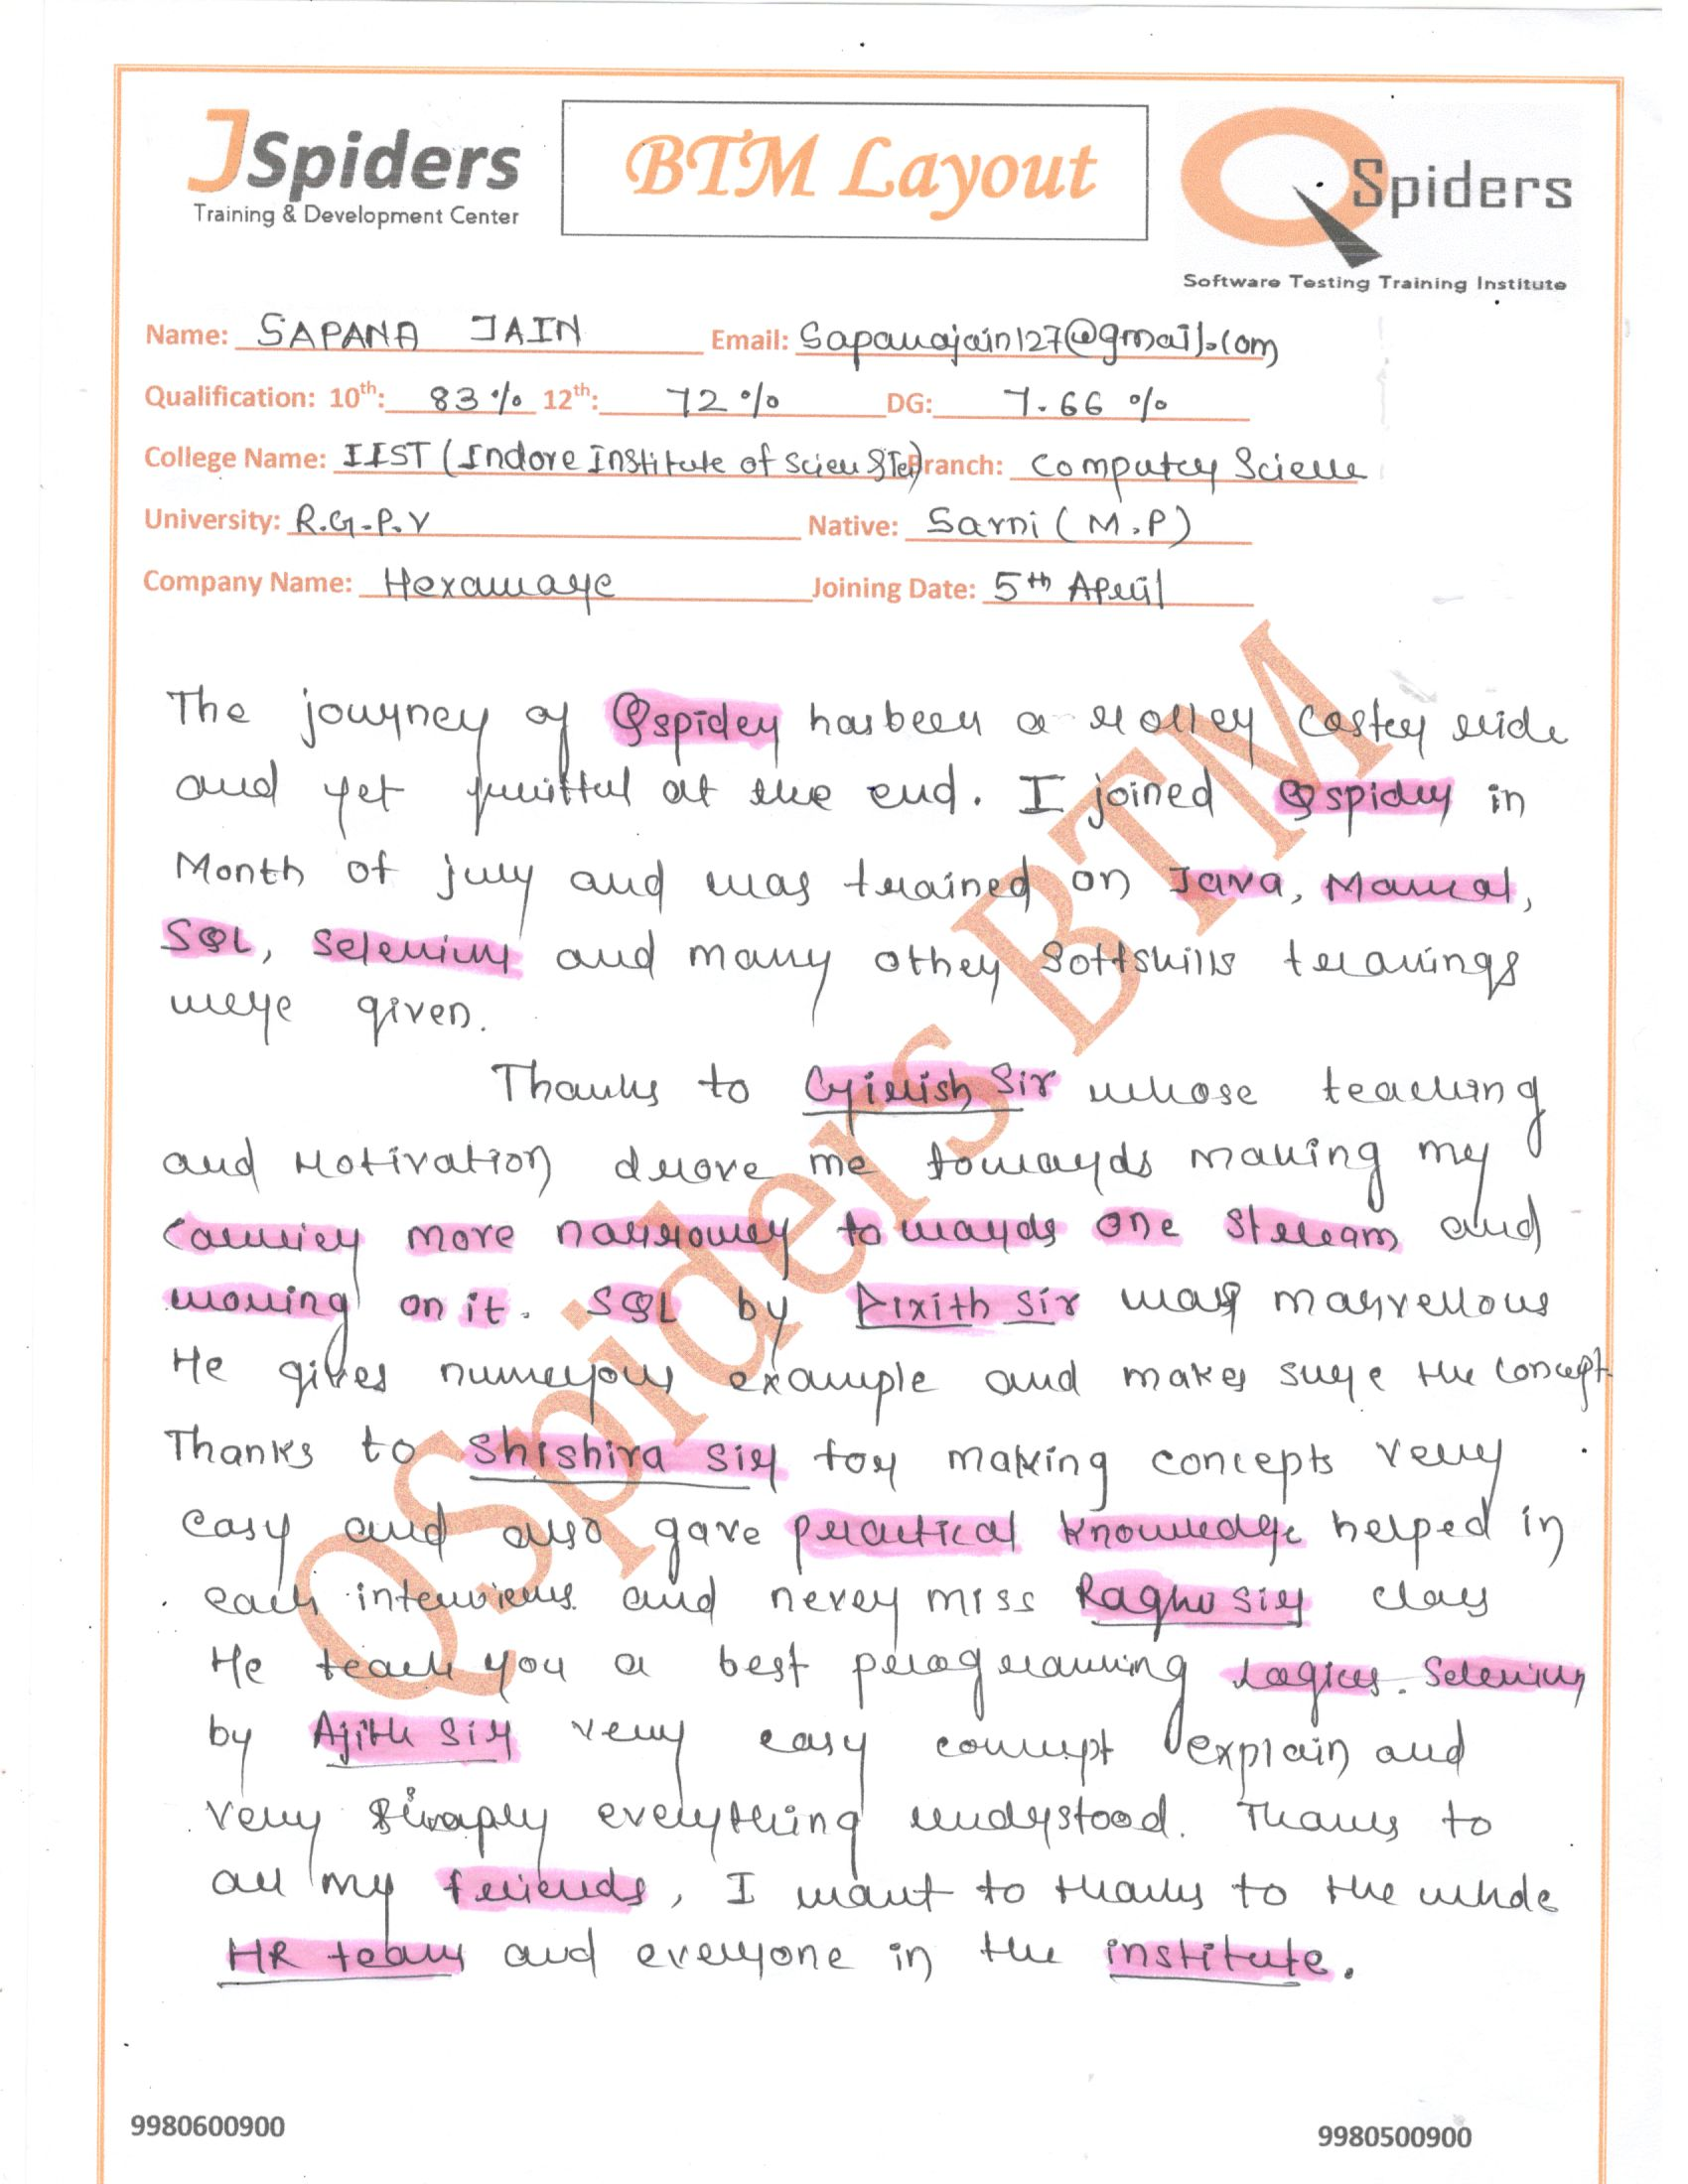 JSpiders
Training & Development Center
BTM Layout
QSpiders
Software Testing Training Institute
Name: SAPANA JAIN Email: Sapanajain127@gmail.com
Qualification: 10th: 83% 12th: 72% DG: 7.66 %
College Name: IIST (Indore Institute of Scien & Tec) Branch: Computer Science
University: R.G.P.V Native: Sarni (M.P)
Company Name: Hexaware Joining Date: 5th April
The journey of Qspider has been a roller coster ride
and yet fruitful at the end. I joined Qspider in
Month of july and was trained on Java, Manual,
SQL, Selenium and many other Softskills trainings
were given.
Thanks to Girish Sir whose teaching
and Motivation drove me towards making my
carrier more narrower towards one stream and
working on it. SQL by Dixith Sir was marvellous
He gives numerous example and makes sure the concept
Thanks to Shishira Sir for making concepts very
easy and also gave practical knowledge helped in
each interviews and never miss Raghu sir class
He teach you a best programming Logics. Selenium
by Ajith Sir very easy concept explain and
very simply everything understood. Thanks to
all my friends, I want to thanks to the whole
HR team and everyone in the institute.
QSpiders BTM
9980600900 9980500900